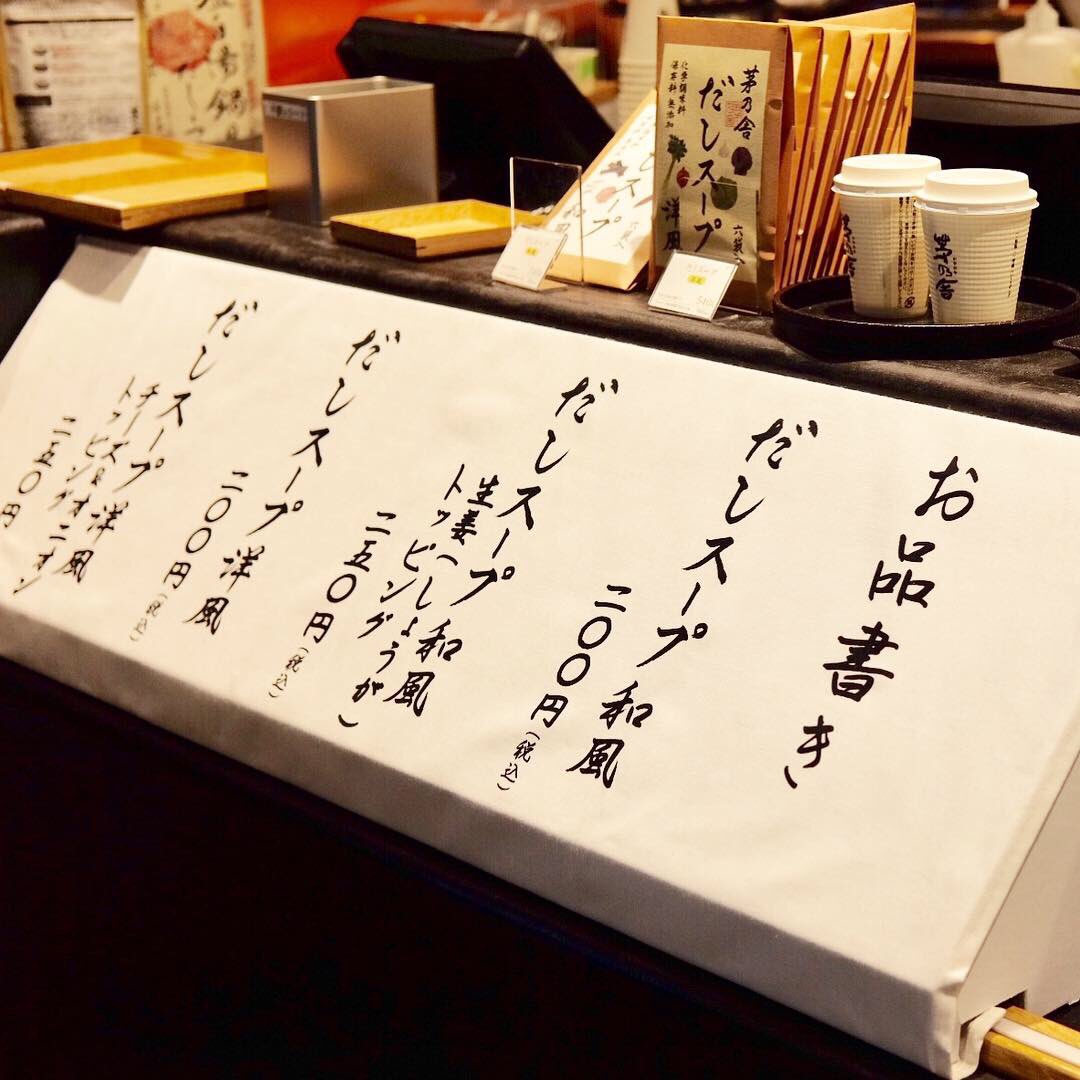 お品書き
だしスープ 和風
二〇〇円(税込)
だしスープ 和風
生姜(しょうが)
トッピング
二五〇円(税込)
だしスープ 洋風
二〇〇円(税込)
だしスープ 洋風
チーズ&オニオン
トッピング
二五〇円
茅乃舎
だしスープ 洋風
六袋入
化学調味料
保存料 無添加
スープ
茅乃舎
茅乃舎